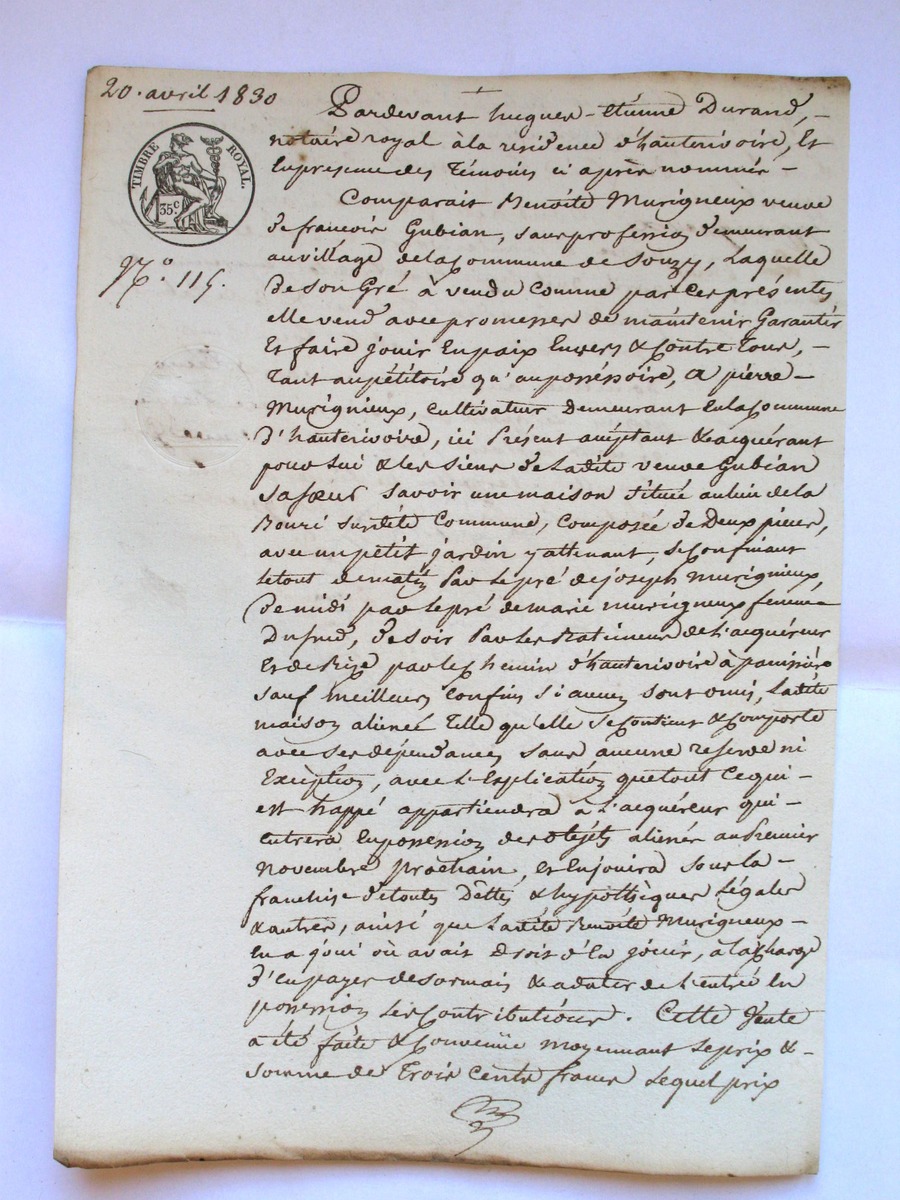 20. avril 1830
TIMBRE ROYAL.
35 c
N.º 115.
Pardevant hugues-Etienne Durand, -
notaire royal à la résidence d'hauterivoire, Et
En presence des Témoins ci après nommés -
Comparait Benoîte Murigneux veuve
de francois Gubian, sans profession demeurant
au village de la Commune de Souzy, Laquelle
de son Gré à vendu comme par ces présentes
elle vend avec promesses de maintenir Garantir
Et faire jouir En paix Envers & Contre Tous, -
Tant au pétitoire qu'au possessoire, a pierre -
Murignieux, cultivateur demeurant En la Commune
d'hauterivoire, ici Présent acceptant & acquérant
pour lui & les siens de Ladite veuve Gubian
sa soeur savoir une maison située au lieu de la
sur dite Commune, composée de Deux pieces,
avec un petit jardin y attenant, se Confinant
le tout de matin Par le pré de joseph Murignieux,
de midi par le pré de marie murigneux femme
de soir Par les Batimens de L'acquéreur
Et de Bize par le Chemin d'hauterivoire à panissière
sauf meilleurs Confins si aucuns sont omis, Ladite
maison alienée Telle qu'elle se Contient & Comporte
avec ses dépendances sans aucune reserve ni
Exception, avec L'Explication que tout Ce qui -
est appartiendra à L'acquéreur qui -
entrera En possession des objets aliénés au Premier
Novembre prochain, Et En jouira sous la -
franchise de toutes Dettes & hypothèques Légales
& autres, ainsi que Ladite Benoîte Murigneux -
En a joui où avait Droit d'En jouir, à la Charge
d'En payer desormais & a dater de L'entrée En
possession Les Contributions. Cette Vente
a été faite & Convenue moyennant Le prix & -
somme de Trois Cents francs Lequel prix